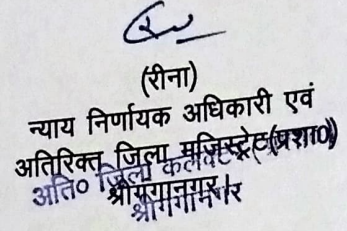 (रीना)
न्याय निर्णायक अधिकारी एवं
अतिरिक्त जिला मजिस्ट्रेट(प्रशा0)
अति० जिला कलक्टर
श्रीगंगानगर।
श्रीगंगानगर